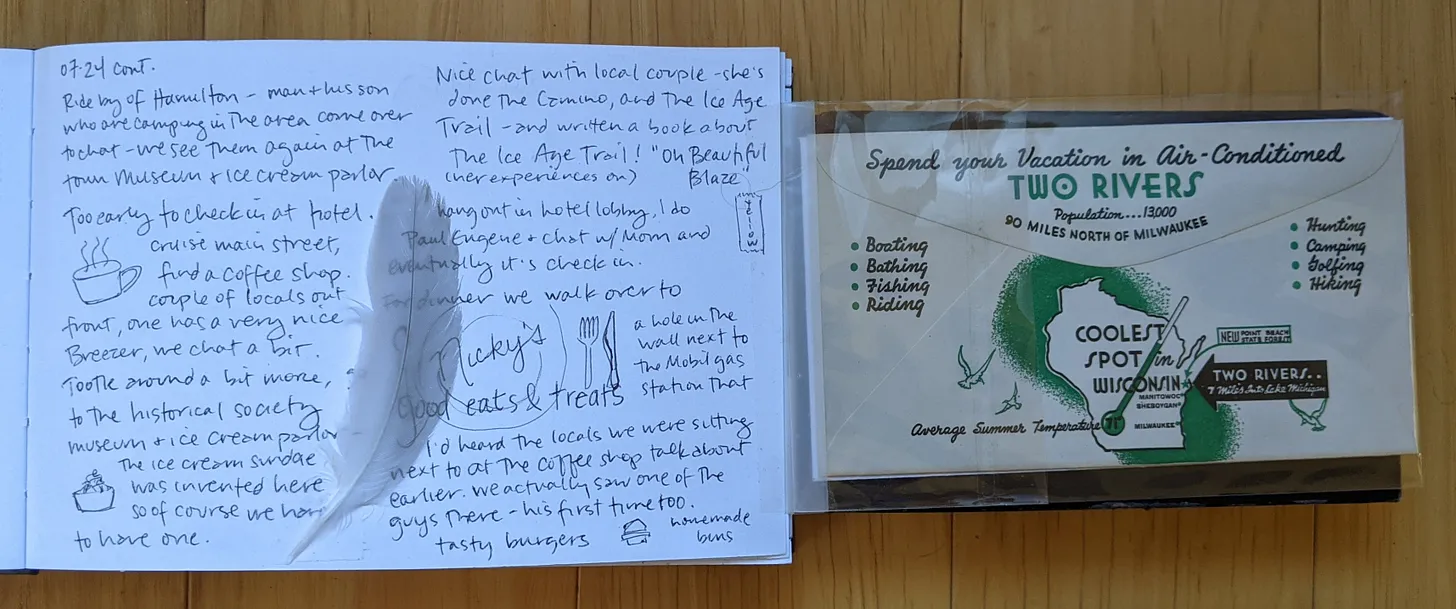 07.24 cont.
Ride by of Hamilton - man + his son
who are camping in The area come over
to chat - we see Them again at The
town museum + ice cream parlor.
Too early to check in at hotel.
cruise main street,
find a coffee shop.
couple of locals out
front, one has a very nice
Breezer, we chat a bit.
Tootle around a bit more,
to the historical society
museum + ice cream parlor
The ice cream sundae
was invented here
so of course we have
to have one.
Nice chat with local couple - she's
done The Camino, and The Ice Age
Trail - and written a book about
The Ice Age Trail! "Oh Beautiful
(her experiences on) Blaze"
YELLOW
hang out in hotel lobby, I do
Paul Eugene + chat w/ Mom and
eventually it's check in.
For dinner we walk over to
Nicky's
good eats & treats
a hole in the
wall next to
the Mobil gas
station that
I'd heard the locals we were sitting
next to at the coffee shop talk about
earlier. we actually saw one of the
guys there - his first time too.
tasty burgers
homemade
buns
Spend your Vacation in Air-Conditioned
TWO RIVERS
Population...13,000
90 MILES NORTH OF MILWAUKEE
Boating
Bathing
Fishing
Riding
Hunting
Camping
Golfing
Hiking
COOLEST
SPOT in
WISCONSIN
NEW POINT BEACH
STATE FOREST
TWO RIVERS..
7 Miles Into Lake Michigan
MANITOWOC
SHEBOYGAN
MILWAUKEE
Average Summer Temperature 71°